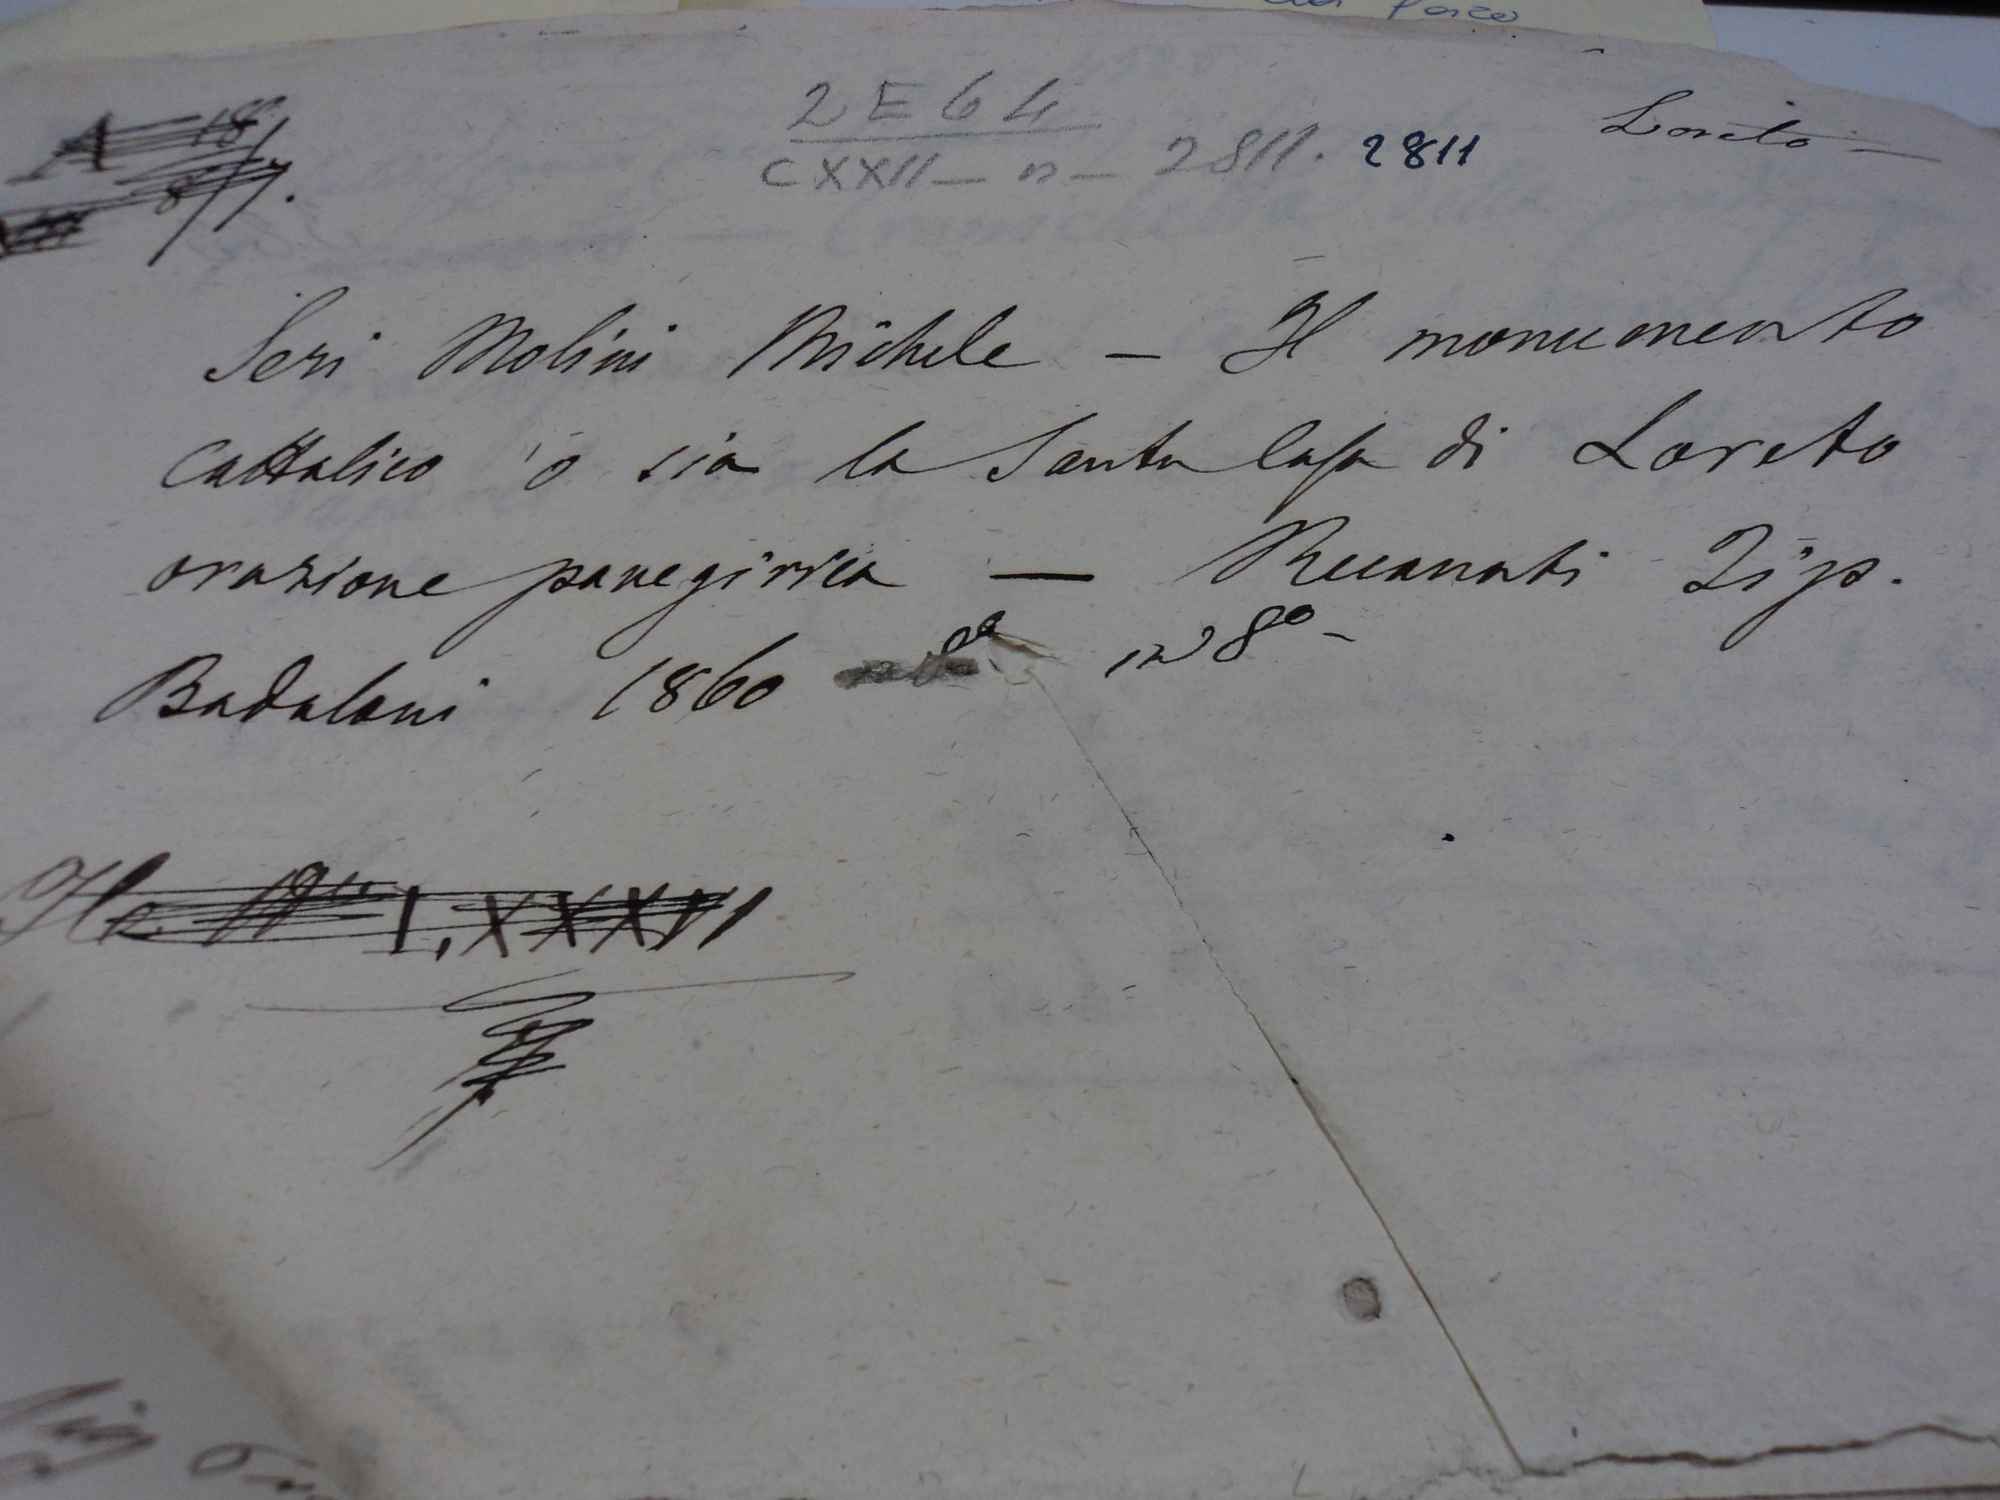 2E64
CXXII - n - 2811. 2811
Loreto -
Seri Molini Michele - Il monumento
Cattolico o sia la Santa Casa di Loreto
orazione panegirica - Recanati Tip.
Badaloni 1860 in 8º -
LXXXVI